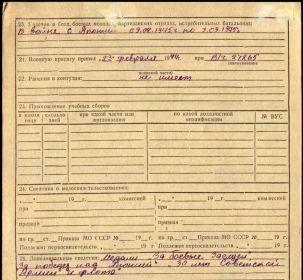 20. Участие в боях, боевых походах, партизанских отрядах, истребительных батальонах
В войне с Японией 09.08.1945г по 3.09.1945г.
21. Военную присягу принял „23“ февраля 1944г. при В/ч 27865
22. Ранения и контузии: не имеет
23. Прохождение учебных сборов
в каком году
сколько дней
при какой части или организации
по какой должностной квалификации
№ ВУС
24. Сведения о медосвидетельствовании:
по гр. ст. Приказа МО СССР №
по гр. ст. Приказа МО СССР №
Подлежит переосвидетельств.
Подлежит переосвидетельств.
25. Дополнительные сведения: Медали За боевые Заслуги
За победу над Японией 30 лет Советской
Армии и флота